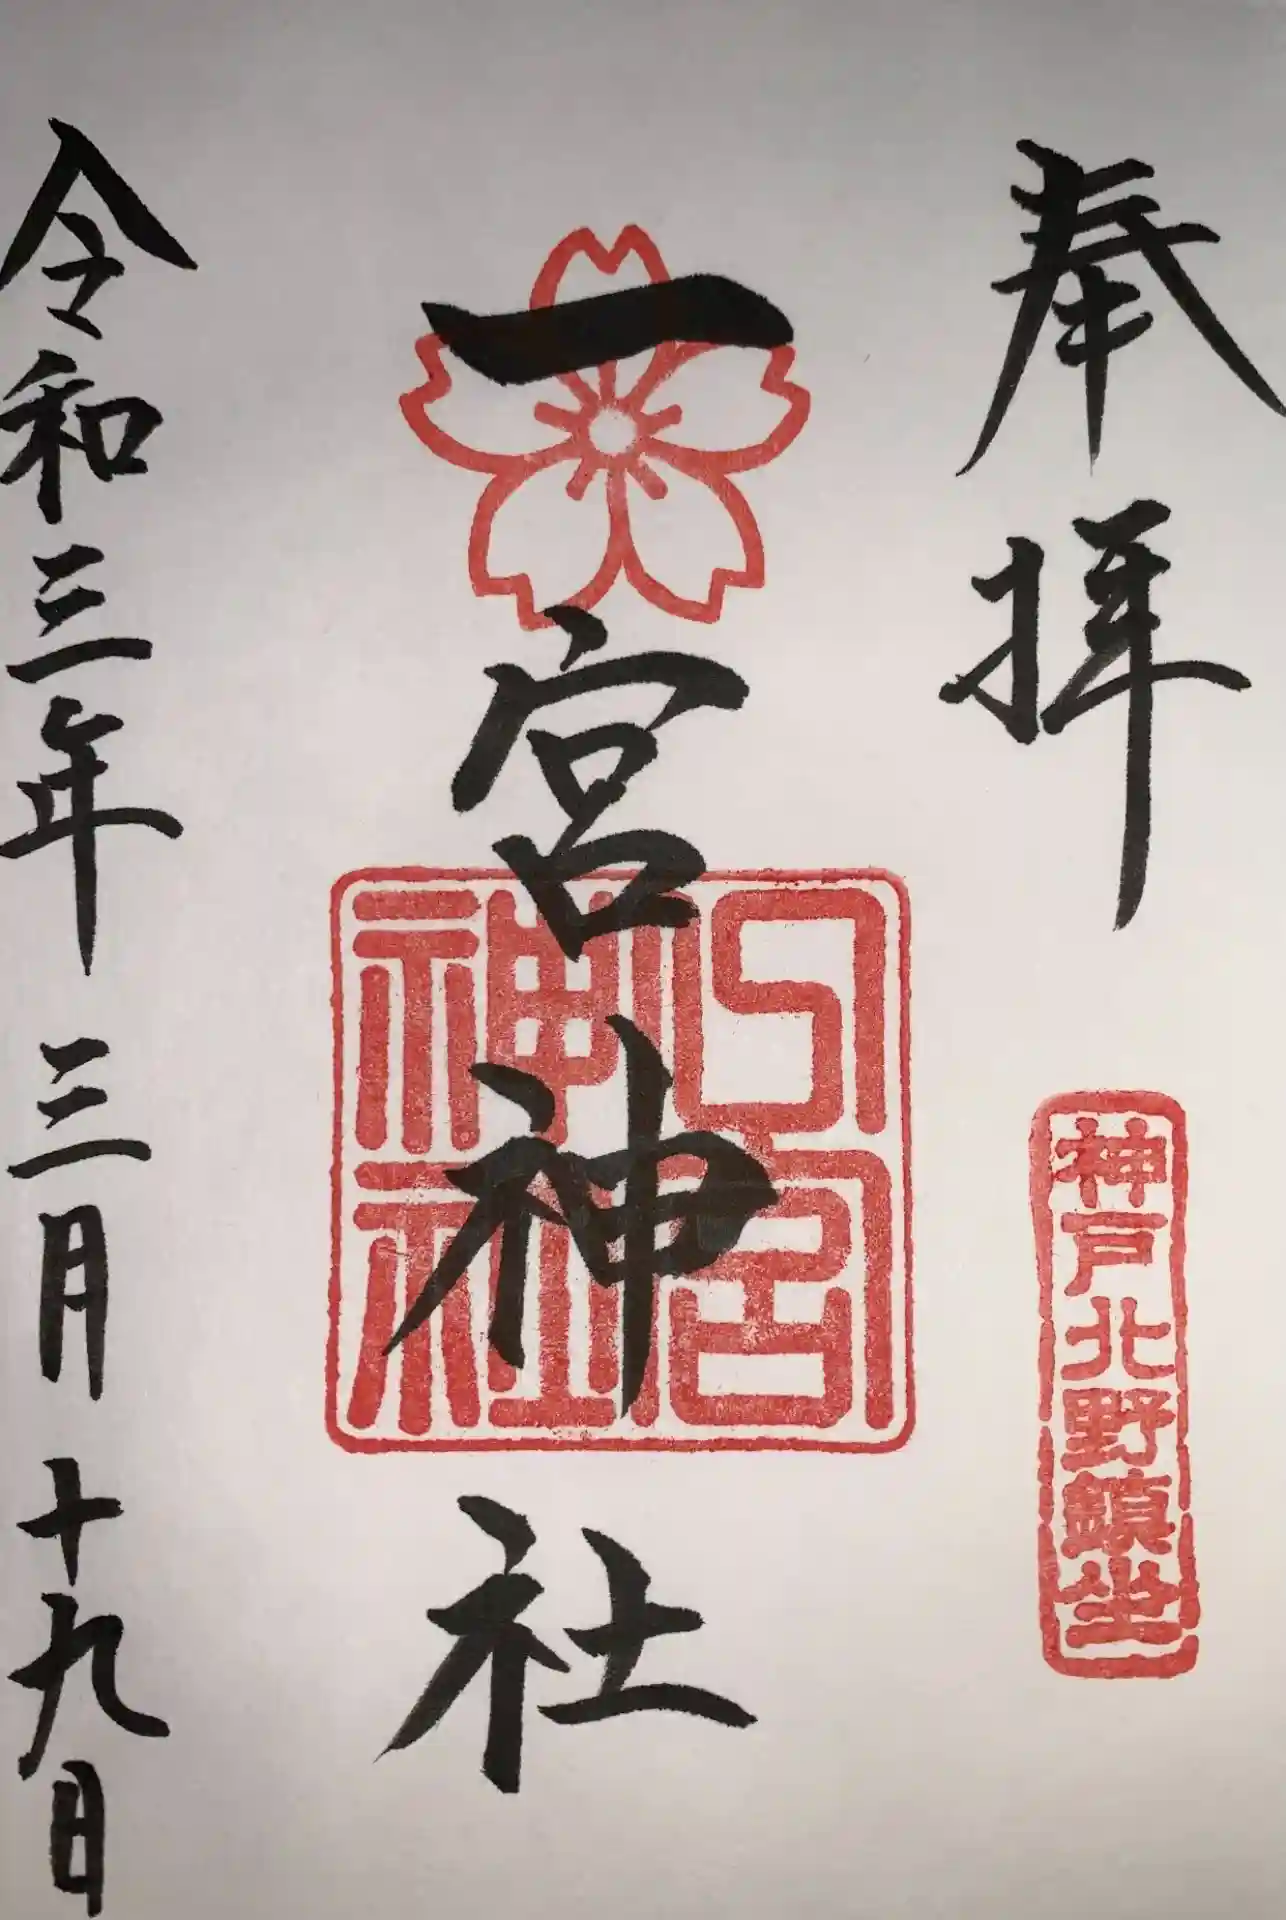 奉拝
神戸北野鎮坐
一宮神社
弌宮
神社
令和三年三月十九日